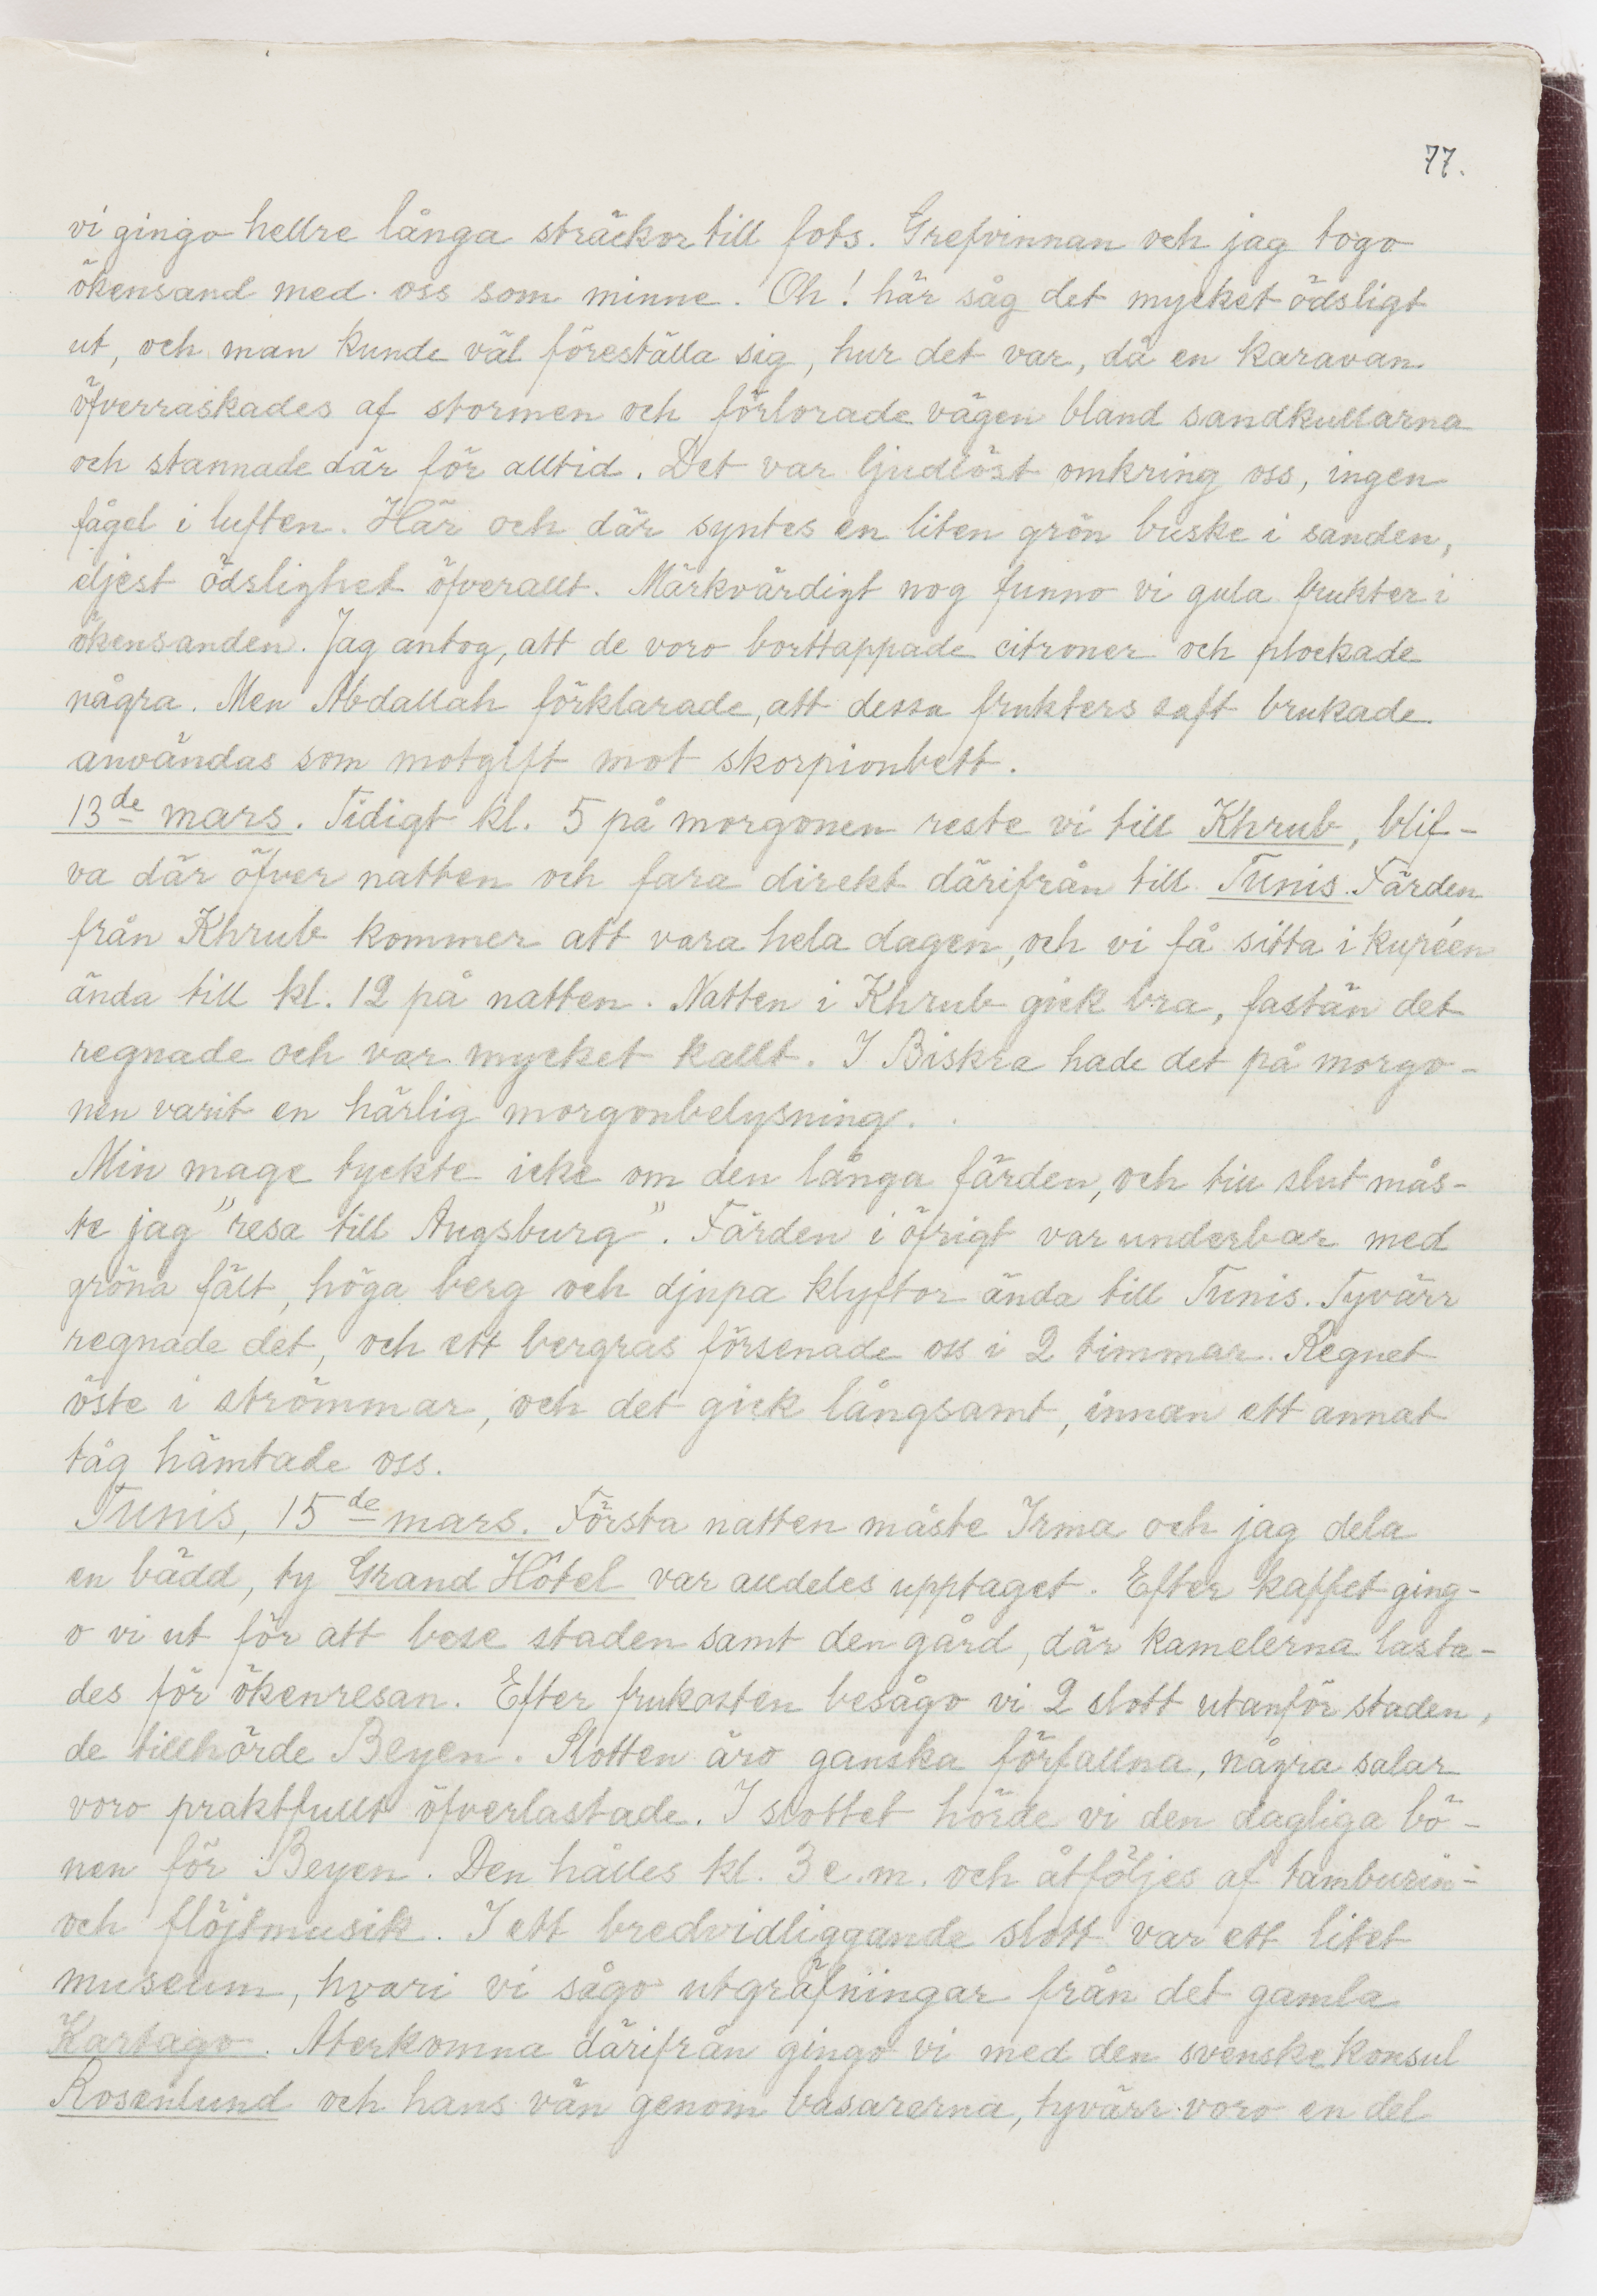 77.
vi gingo hellre långa sträckor till fots. Grefvinnan och jag togo
ökensand med oss som minne. Oh! här såg det mycket ödsligt
ut, och man kunde väl föreställa sig, hur det var, då en karavan
öfverraskades af stormen och förlorade vägen bland sandkullarna
och stannade där för alltid. Det var ljudlöst omkring oss, ingen
fågel i luften. Här och där syntes en liten grön buske i sanden,
eljest ödslighet öfverallt. Märkvärdigt nog funno vi gula frukter i
ökensanden. Jag antog, att de voro borttappade citroner och plockade
några. Men Abdallah förklarade, att dessa frukters saft brukade
användas som motgift mot skorpionbett.
13de mars. Tidigt kl. 5 på morgonen reste vi till Khrub, blif-
va där öfver natten och fara direkt därifrån till Tunis. Färden
från Khrub kommer att vara hela dagen, och vi få sitta i kupéen
ända till kl. 12 på natten. Natten i Khrub gick bra, fastän det
regnade och var mycket kallt. I Biskra hade det på morgo-
nen varit en härlig morgonbelysning.
Min mage tyckte icke om den långa färden, och till slut mås-
te jag "resa till Augsburg". Färden i öfrigt var underbar med
gröna fält, höga berg och djupa klyftor ända till Tunis. Tyvärr
regnade det, och ett bergras försenade oss i 2 timmar. Regnet
öste i strömmar, och det gick långsamt, innan ett annat
tåg hämtade oss.
Tunis, 15de mars. Första natten måste Irma och jag dela
en bädd, ty Grand Hôtel var alldeles upptaget. Efter kaffet ging-
o vi ut för att bese staden samt den gård, där kamelerna lasta-
des för ökenresan. Efter frukosten besågo vi 2 slott utanför staden,
de tillhörde Beyen. Slotten äro ganska förfallna, några salar
voro praktfullt öfverlastade. I slottet hörde vi den dagliga bö-
nen för Beyen. Den hålles kl. 3 e.m. och åtföljes af tamburin-
och flöjtmusik. I ett bredvidliggande slott var ett litet
museum, hvari vi sågo utgräfningar från det gamla
Kartago. Återkomna därifrån gingo vi med den svenske konsul
Rosenlund och hans vän genom basarerna, tyvärr voro en del